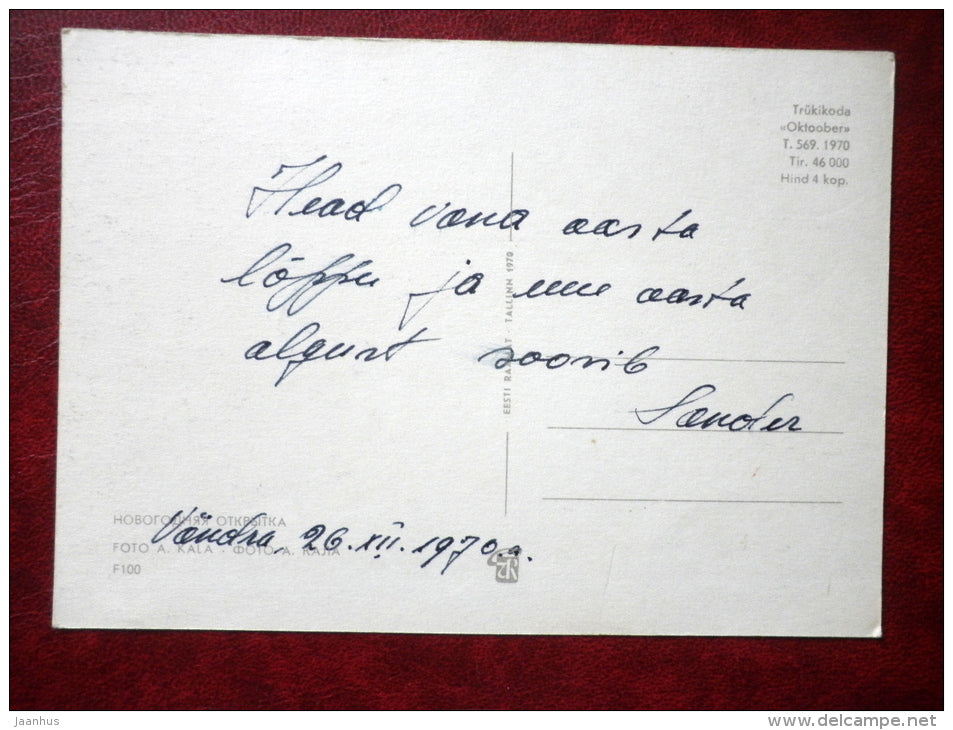 Trükikoda
«Oktoober»
T. 569. 1970
Tir. 46 000
Hind 4 kop.
Head vana aasta
lõppu ja uue aasta
algust soovib
Sander
EESTI RAAMAT TALLINN 1970
НОВОГОДНЯЯ ОТКРЫТКА
Vändra, 26.XII.1970.a.
FOTO A. KALA · ФОТО А. КАЛА
F100
Jaanhus
www.delcampe.net